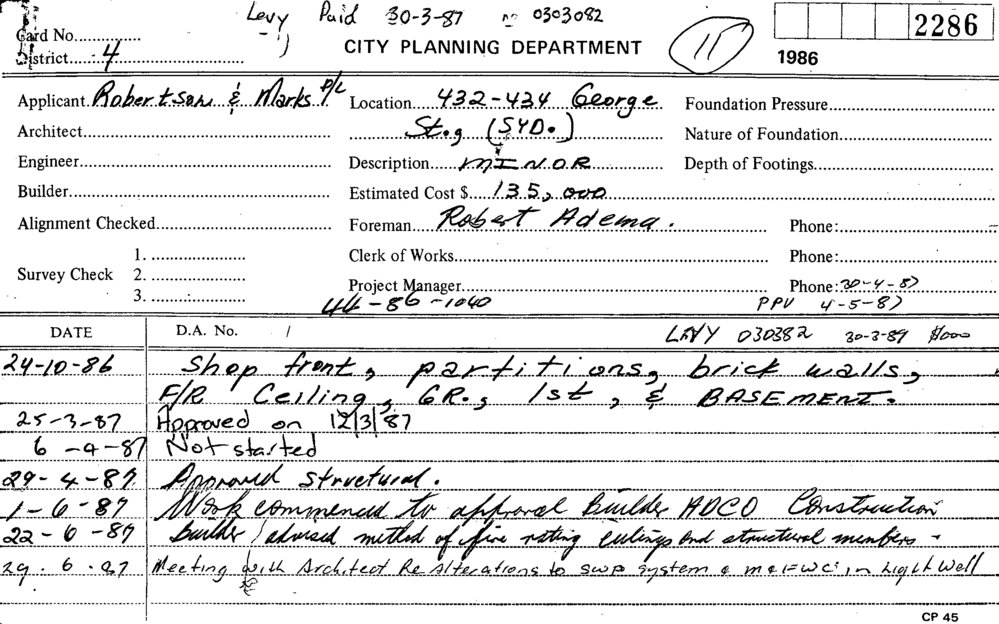 Levy Paid 30-3-87 no 0303082
Card No..............
District......4
CITY PLANNING DEPARTMENT
11
2286
1986
Applicant Robertson & Marks P/L
Location 432-434 George
St., (SYD.)
Foundation Pressure
Architect
Nature of Foundation
Engineer
Description MINOR
Depth of Footings
Builder
Estimated Cost $ 135,000
Alignment Checked
Foreman Robert Adema.
Phone:
Survey Check
1.
2.
3.
Clerk of Works
Phone:
Project Manager
Phone: 30-4-87
44-86-1040
PPU 4-5-87
DATE
D.A. No. /
LEVY 030382 30-3-87
24-10-86 Shop front, partitions, brick walls,
F/R Ceiling, GR., 1st, & BASEMENT.
25-3-87 Approved on 12/3/87
6-4-87 Not started
29-4-87 Approved structural.
1-6-87 Work commenced to approval Builder ADCO Construction
22-6-87 builder advised method of fire rating ceilings and structural members -
29.6.87 Meeting with Architect Re Alterations to SWP system & M & F WC's in Light Well
CP 45